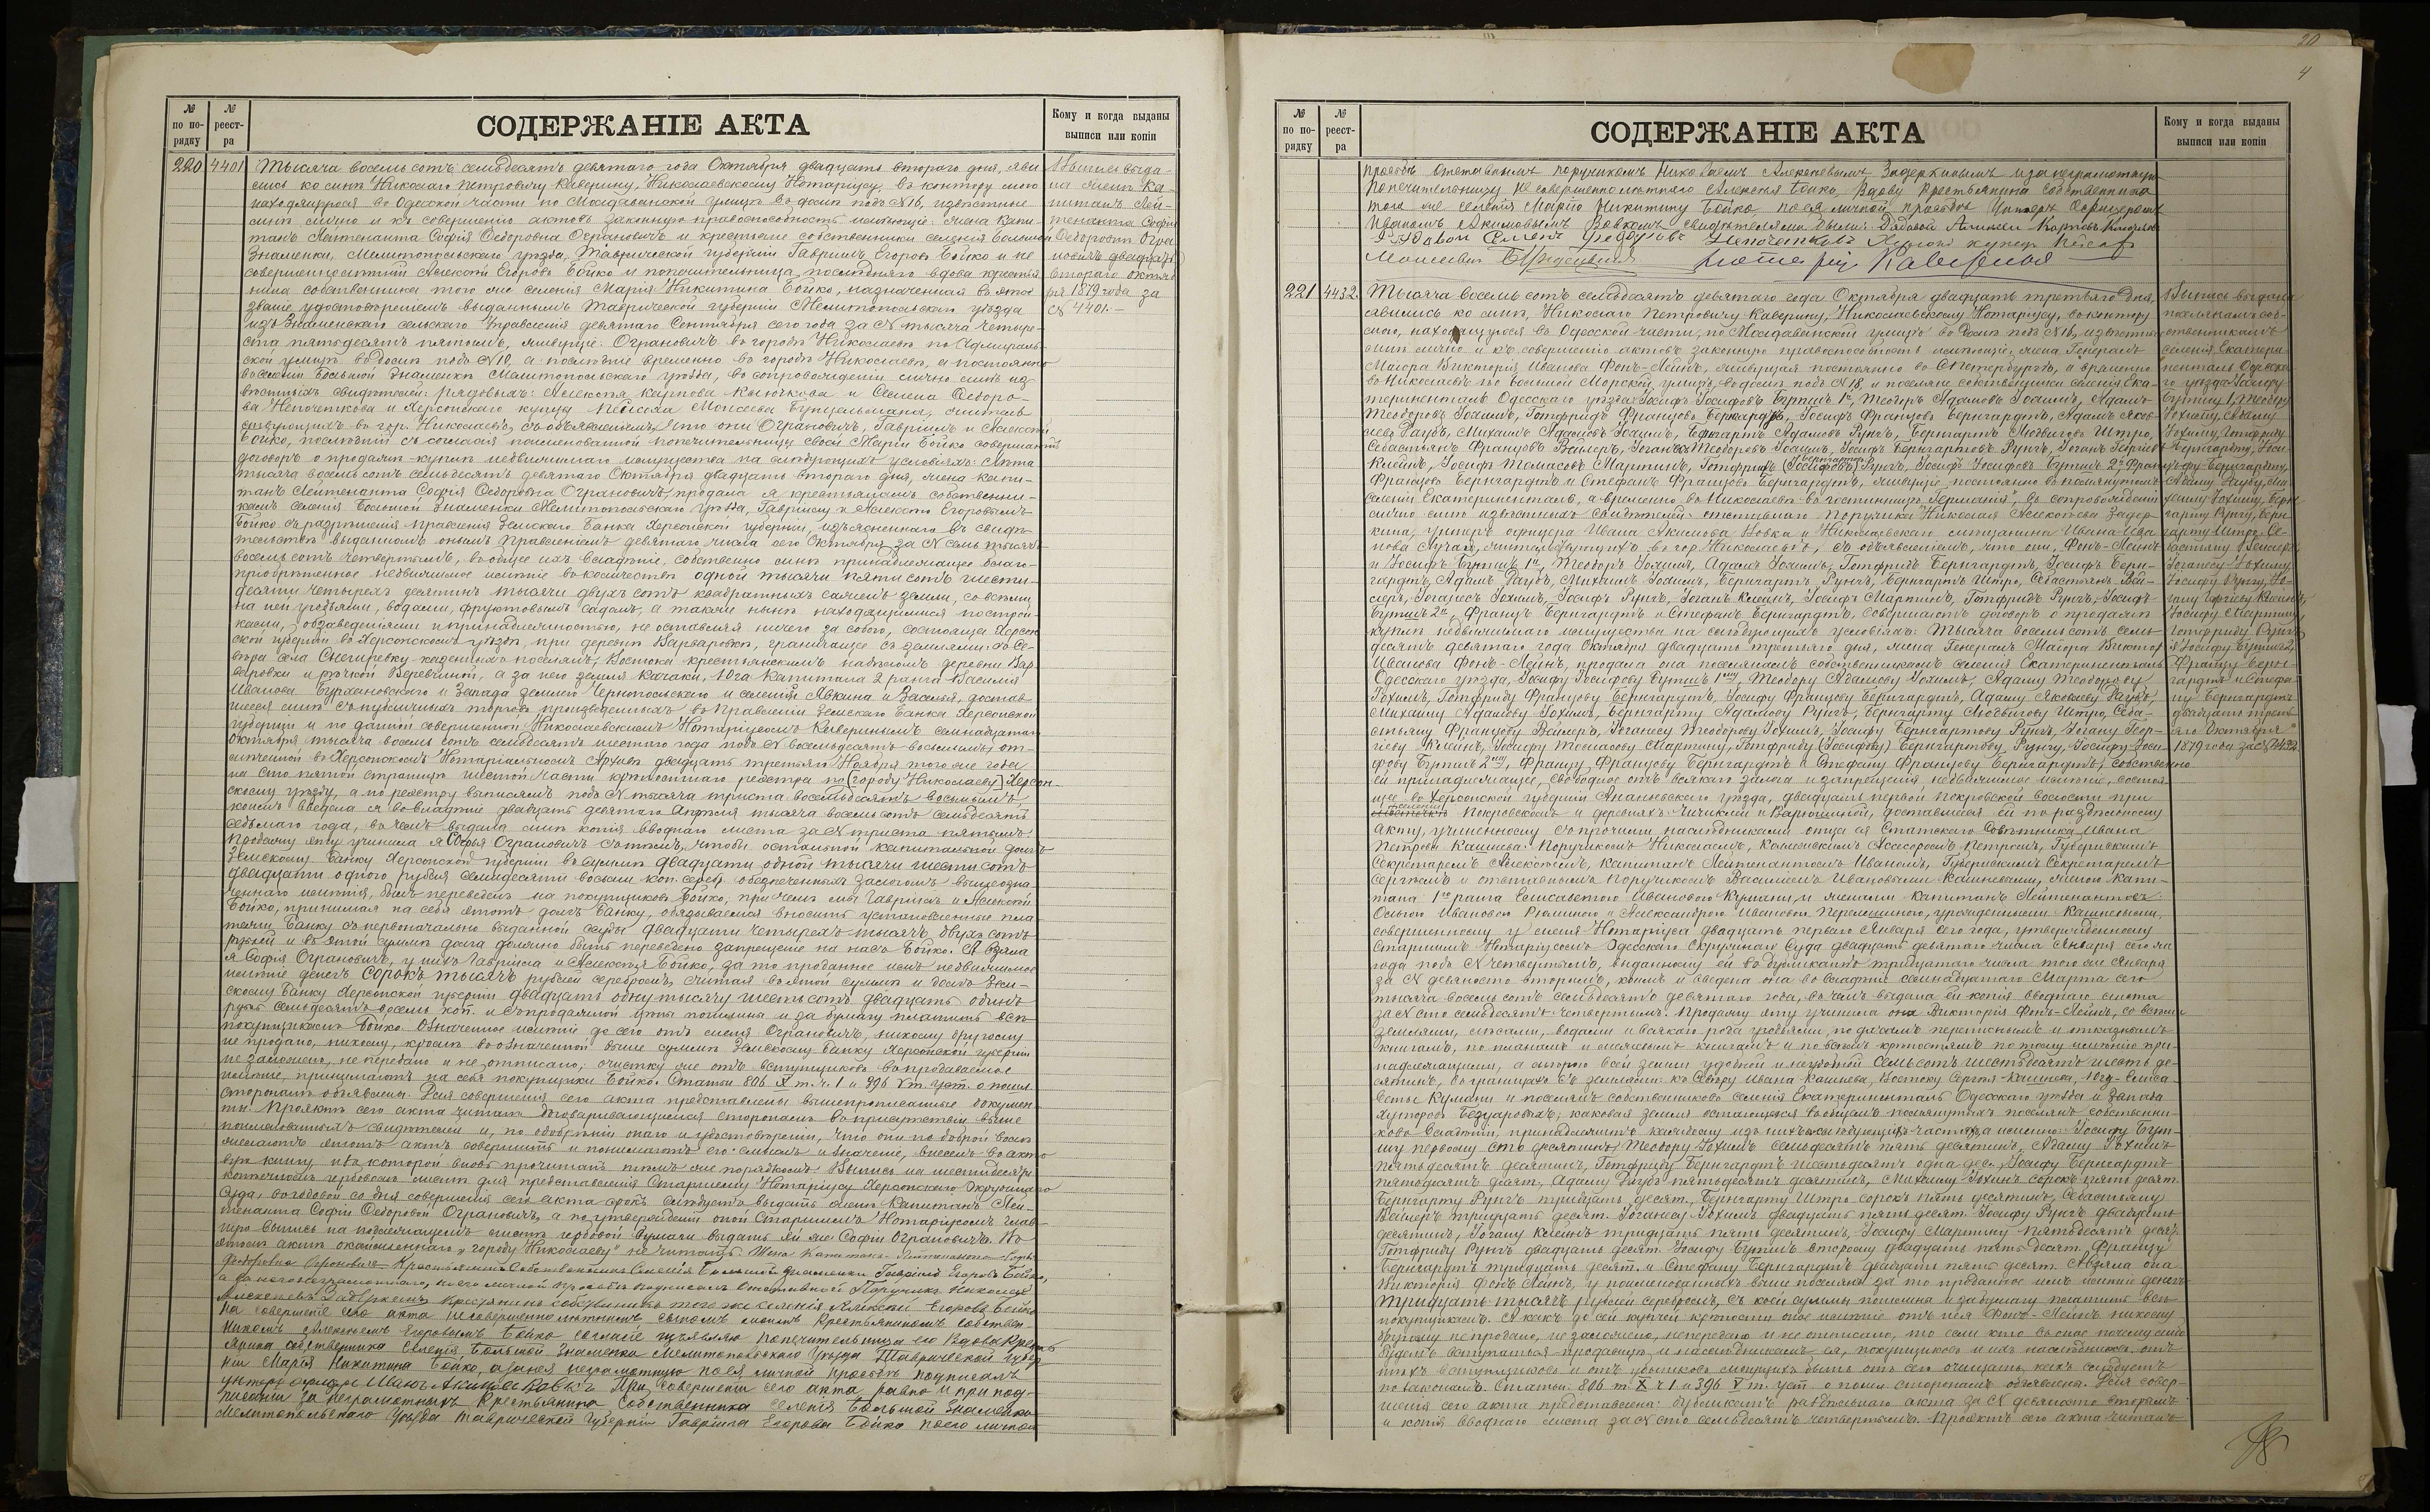 № по по-рядку
№ реест-ра
СОДЕРЖАНІЕ АКТА
Кому и когда выданы выписи или копіи
220 4401
Тысяча восемь сотъ семьдесятъ девятаго года Октября двадцать втораго дня, яви
лись ко мнѣ Николаю Петровичу Каверину, Николаевскому Нотаріусу, въ контору мою
находящуюся въ Одесской части по Молдаванской улицѣ въ домѣ подъ №16, извѣстные
мнѣ лично и къ совершенію актовъ законную правоспособность имѣющіе: жена Капи-
танъ Лейтенанта Софія Ѳедоровна Ограновичъ и крестьяне собственники селенія Большой
Знаменки, Мелитопольскаго уѣзда, Таврической губерніи Гавріилъ Егоровъ Бойко и не
совершеннолѣтній Алексѣй Егоровъ Бойко и попечительница послѣдняго вдова крестья
нина собственника того же селенія Марія Никитина Бойко, назначенная въ это
званіе удостовѣреніемъ выданнымъ Таврической губерніи Мелитопольскаго уѣзда
изъ Знаменскаго сельскаго Управленія девятаго Сентября сего года за № тысяча четыре-
ста пятьдесятъ пятымъ, живущіе: Ограновичъ въ городѣ Николаевѣ по Адмираль-
ской улицѣ въ домѣ подъ №10, а послѣдніе временно въ городѣ Николаевѣ, а постоянно
въ селеніи Большой Знаменкѣ Мелитопольскаго уѣзда, въ сопровожденіи лично мнѣ из-
вѣстныхъ свидѣтелей: рядовыхъ: Алексѣя Карпова Клочкова и Семена Ѳедоро-
ва Непочаткова и Херсонскаго купца Пейсаха Моисеева Бунцельмана, житель
ствующихъ въ гор. Николаевѣ, съ объявленіемъ, что они Ограновичъ, Гавріилъ и Алексѣй
Бойко, послѣдній съ согласія поименованной попечительницы своей Маріи Бойко совершаютъ
договоръ о продажѣ-куплѣ недвижимаго имущества на слѣдующихъ условіяхъ: Лѣта
тысяча восемь сотъ семьдесятъ девятаго Октября двадцать втораго дня, жена капи-
танъ Лейтенанта Софія Ѳедоровна Ограновичъ, продала я крестьянамъ собственни-
камъ селенія Большой Знаменки Мелитопольскаго уѣзда, Гаврiилу и Алексѣю Егоровымъ
Бойко съ разрѣшенія правленія Земскаго Банка Херсонской губерніи, изъясненнаго въ свидѣ-
тельствѣ выданномъ онымъ правленіемъ девятаго числа сего Октября за № семь тысячъ
восемь сотъ четвертымъ, въ общее ихъ владѣніе, собственно мнѣ принадлежащее благо-
пріобрѣтенное недвижимое имѣніе въ количествѣ одной тысячи пяти сотъ шести-
десяти четырехъ десятинъ тысячи двухъ сотъ квадратныхъ саженъ земли, со всѣми
на ней угодьями, водами, фруктовымъ садомъ, а также нынѣ находящимися построй-
ками, обзаведеніями и принадлежностью, не оставляя ничего за собою, состоящее Херсон
ской губерніи въ Херсонскомъ уѣздѣ, при деревнѣ Варваровкѣ, граничащее съ землями: съ Се-
вера села Снегиревку казенныхъ поселянъ, Востока крестьянскимъ надѣломъ деревни Вар-
варовки и рѣчкой Веревчиной, а за нею земля Качаки, Юга Капитана 2 ранга Василія
Иванова Бурхановскаго и Запада землею Чернопольскаго и селеній Явкина и Засѣлья, достав-
шееся мнѣ съ публичныхъ торговъ произведенныхъ въ Правленіи Земскаго Банка Херсонской
губерніи и по данной совершенной Николаевскимъ Нотаріусомъ Каверинымъ семнадцатаго
Октября тысяча восемь сотъ семьдесятъ шестаго года подъ № восемьдесятъ восьмымъ, от-
мѣченной въ Херсонскомъ Нотаріальномъ Архивѣ двадцать третьяго Ноября того же года
на сто пятой страницѣ шестой части крѣпостнаго реестра по (городу Николаеву) Херсон-
скому уѣзду, а по реестру выписямъ подъ № тысяча триста восемьдесятъ восьмымъ,
коимъ введена я во владѣніе двадцать девятаго Апрѣля тысяча восемь сотъ семьдесятъ
седьмаго года, въ чемъ выдана мнѣ копія вводнаго листа за № триста пятымъ.
Продажу эту учинила я Софья Ограновичъ съ тѣмъ, чтобы остальной капитальный долгъ
Земскому Банку Херсонской губерніи въ суммѣ двадцати одной тысячи шести сотъ
двадцати одного рубля семидесяти восьми коп. серебр. обезпеченныхъ залогомъ вышеозна-
ченнаго имѣнія, былъ переведенъ на покупщиковъ Бойко, при чемъ мы Гавріилъ и Алексѣй
Бойко, принимая на себя этотъ долгъ Банку, обязываемся вносить установленные пла-
тежи Банку съ первоначально выданной ссуды двадцати четырехъ тысячъ двухъ сотъ
рублей и въ этой суммѣ долга должно быть переведено запрещеніе на насъ Бойко. А взяла
я Софія Ограновичъ, у нихъ Гавріила и Алексѣя Бойко, за то проданное имъ недвижимое
имѣніе денегъ сорокъ тысячъ рублей серебромъ, считая въ этой суммѣ и долгъ Зем-
скому Банку Херсонской губерніи двадцать одну тысячу шесть сотъ двадцать одинъ
рубль семьдесятъ восемь коп. и съ продажной цѣны пошлины и за бумагу платить всѣ
покупщикамъ Бойко. Означенное имѣніе до сего отъ меня Ограновичъ, никому другому
не продано, никому, кромѣ въ означенной выше суммѣ Земскому Банку Херсонской губерніи
не заложено, не передано и не отписано; очистку же отъ вступщиковъ въ продаваемое
имѣніе, принимаютъ на себя покупщики Бойко. Статьи 806 X т. ч. 1 и 396 V т. уст. о пошл.
сторонамъ объявлены. Для совершенія сего акта представлены вышепрописанные докумен-
ты. Проектъ сего акта читанъ договаривающимся сторонамъ въ присутствіи выше
поименованныхъ свидѣтелей и, по одобреніи онаго и удостовѣреніи, что они по доброй волѣ
желаютъ этотъ актъ совершить и понимаютъ его смыслъ и значеніе, внесенъ въ акто
вую книгу, изъ которой вновь прочитанъ тѣмъ же порядкомъ. Выпись на шестидесяти
копѣечномъ гербовомъ листѣ для представленія Старшему Нотаріусу Херсонскаго Окружнаго
Суда, въ годовой со дня совершенія сего акта срокъ слѣдуетъ выдать женѣ Капитанъ Лей-
тенанта Софіи Ѳедоровой Ограновичъ, а по утвержденіи оной Старшимъ Нотаріусомъ глав-
ную выпись на подлежащемъ листѣ гербовой бумаги выдать ей же Софіи Ограновичъ. Въ
этомъ актѣ окавыченнаго „городу Николаеву" не читать. Жена Капитана-Лейтенанта Софья
Ѳедоровна Ограновичъ. Крестьянинъ Собственникъ Селенія Большой Знаменки Гавріилъ Егоровъ Бойко,
а за него неграмотнаго, по его личной просьбѣ подписалъ отставной Поручикъ Николай
Алексѣевъ Задеркинъ Крестьянинъ собственникъ того же селенія Алексѣй Егоровъ Бойко
На совершеніе сего акта несовершеннолѣтнимъ сыномъ моимъ Крестьяниномъ собствен-
никомъ Алексѣемъ Егоровымъ Бойко согласіе изъявляю попечительница его вдова кресть
янина собственника Селенія, Большой Знаменки Мелитопольскаго Уѣзда Таврической Губер
ніи Марія Никитина Бойко, а за нея неграмотную по ея личной просьбѣ подписалъ
унтеръ офицеръ Иванъ Акимовъ Вовкъ При совершеніи сего акта равно и при под-
писаніи за неграмотныхъ Крестьянина Собственника селенія Большой Знаменки
Мелитопольскаго Уѣзда Таврической Губерніи Гавріила Егорова Бойко по его личной
Выпись выда-
на женѣ Ка-
питанъ Лей-
тенанта Софіи
Ѳедоровнѣ Огра-
новичъ двадцать
втораго октяб
ря 1879 года за
№ 4401.—
20
4
№ по по-рядку
№ реест-ра
СОДЕРЖАНІЕ АКТА
Кому и когда выданы выписи или копіи
просьбѣ отставнымъ поручикомъ Николаемъ Алексѣевымъ Задеркинымъ и за неграмотную
попечительницу не совершеннолѣтняго Алексѣя Бойко, Вдову Крестьянина Собственника
того же селенія Марію Никитину Бойко по ея личной просьбѣ Унтеръ Офицеромъ
Иваномъ Акимовымъ Вовкомъ свидѣтелями были: Рядовой Алексѣй Карповъ Клочковъ
Рядовой Семенъ Федоровъ Непочатковъ Херсон. купецъ Пейсахъ
Моисеевичъ Бунцельманъ Нотаріусъ Каверинъ
221 4432
Тысяча восемь сотъ семьдесятъ девятаго года Октября двадцать третьяго дня,
явились ко мнѣ, Николаю Петровичу Каверину, Николаевскому Нотаріусу, въ контору
мою, находящуюся въ Одесской части, по Молдаванской улицѣ въ домѣ подъ №16, извѣстные
мнѣ лично и къ совершенію актовъ законную правоспособность имѣющіе: жена Генералъ
Маіора Викторія Иванова Фонъ-Лейнъ, живущая постоянно въ С.Петербургѣ, а временно
въ Николаевѣ по Большой Морской улицѣ, въ домѣ подъ №18, и поселяне собственники селенія Ека-
териненталь Одесскаго уѣзда: Іосифъ Іосифовъ Бутшъ 1й, Теодоръ Адамовъ Іохимъ, Адамъ
Теодоровъ Іохимъ, Готфридъ Францовъ Бернгардтъ, Іосифъ Францовъ Бернгардтъ, Адамъ Яков-
левъ Раубъ, Михаилъ Адамовъ Іохимъ, Бернгартъ Адамовъ Рунгъ, Бернгартъ Людвиговъ Штро,
Себастьянъ Францовъ Вайлеръ, Іоганесъ Теодоровъ Іохимъ, Іосифъ Бернгартовъ Рунгъ, Іоганъ Георгіевъ
Клеинъ, Іосифъ Томасовъ Мартинъ, Готфридъ (Іосифовъ) Бернгартовъ Рунгъ, Іосифъ Іосифовъ Бутшъ 2й Францъ
Францовъ Бернгардтъ и Стефанъ Францовъ Бернгардтъ, живущіе постоянно въ помянутомъ
селеніи Екатериненталь, а временно въ Николаевѣ въ гостинницѣ „Германія", въ сопровожденіи
лично мнѣ извѣстныхъ свидѣтелей: отставнаго Поручика Николая Алексѣева Задер
кина, унтеръ офицера Ивана Акимова Вовка и Николаевскаго мѣщанина Ивана Ива
нова Лугана, жительствующихъ въ гор. Николаевѣ, съ объявленіемъ, что они, Фонъ-Лейнъ
и Іосифъ Бутшъ 1й, Теодоръ Іохимъ, Адамъ Іохимъ, Готфридъ Бернгардтъ, Іосифъ Берн-
гардтъ, Адамъ Раубъ, Михаилъ Іохимъ, Бернгартъ Рунгъ, Бернгартъ Штро, Себастьянъ Вай-
леръ, Іоганесъ Іохимъ, Іосифъ Рунгъ, Іоганъ Клеинъ, Іосифъ Мартинъ, Готфридъ Рунгъ, Іосифъ
Бутшъ 2й, Францъ Бернгардтъ и Стефанъ Бернгардтъ, совершаютъ договоръ о продажѣ
куплѣ недвижимаго имущества на слѣдующихъ условіяхъ: Тысяча восемь сотъ семь-
десятъ девятаго года Октября двадцать третьяго дня, жена Генералъ Маіора Викторія
Иванова Фонъ-Лейнъ, продала она поселянамъ собственникамъ селенія Екатериненталь
Одесскаго уѣзда, Іосифу Іосифову Бутшъ 1му, Теодору Адамову Іохимъ, Адаму Теодорову
Іохимъ, Готфриду Францову Бернгардтъ, Іосифу Францову Бернгардтъ, Адаму Яковлеву Раубъ,
Михаилу Адамову Іохимъ, Бернгарту Адамову Рунгъ, Бернгарту Людвигову Штро, Себа-
стьяну Францову Вайлеръ, Іоганесу Теодорову Іохимъ, Іосифу Бернгартову Рунгъ, Іогану Геор-
гіеву Клеинъ, Іосифу Томасову Мартину, Готфриду (Іосифову) Бернгартову, Рунгу, Іосифу Іоси-
фову Бутшъ 2му, Францу Францову Бернгардтъ и Стефану Францову Бернгардтъ, собственно
ей принадлежащее, свободное отъ всякаго залога и запрещенія недвижимое имѣніе, состоя-
щее въ Херсонской губерніи Ананьевскаго уѣзда, двадцать первой Покровской волости при
Покровскомъ и деревняхъ: Чичиклѣ и Варюшиной, доставшееся ей по раздѣльному
акту, учиненному съ прочими наслѣдниками отца ея Статскаго Совѣтника Ивана
Петрова Кашнева: Поручикомъ Николаемъ, Коллежскимъ Асессоромъ Петромъ, Губернскимъ
Секретаремъ Алексѣемъ, Капитанъ Лейтенантомъ Иваномъ, Губернскимъ Секретаремъ
Сергѣемъ и отставнымъ Поручикомъ Василіемъ Ивановыми Кашневыми, женою капи-
тана 1го ранга Елисаветою Ивановою Кумани, и женами капитанъ Лейтенантовъ:
Ольгой Ивановой Рюминою и Александрою Ивановой Перелешиною, урожденными Кашневыми,
совершенному у меня Нотаріуса двадцать перваго Января сего года, утвержденному
Старшимъ Нотаріусомъ Одесскаго Окружнаго Суда двадцать девятаго числа Января сего же
года подъ № четвертымъ, выданному ей въ дубликатѣ тридцатаго числа того же Января
за № девяносто вторымъ, коимъ и введена она во владѣніе семнадцатаго Марта сего
тысяча восемь сотъ семьдесятъ девятаго года, въ чемъ выдана ей копія вводнаго листа
за № сто семьдесятъ четвертымъ. Продажу эту учинила она Викторія Фонъ-Лейнъ, со всѣми
землями, лѣсами, водами и всякаго рода угодьями, по дачамъ переписнымъ и отказнымъ
книгамъ, по планамъ и межевымъ книгамъ и по всѣмъ крѣпостямъ по тому имѣнію при-
надлежащими, а мѣрою всей земли удобной и неудобной семь сотъ шестьдесятъ шесть де-
сятинъ, въ границахъ съ землями: къ Сѣверу Ивана Кашнева, Востоку Сергѣя Кашнева, Югу-Елиса-
веты Кумани и поселянъ собственниковъ селенія Екатериненталь Одесскаго уѣзда и Запада
хуторовъ Безуаровыхъ; каковая земля оставаясь въ общемъ помянутыхъ поселянъ собственни-
ковъ владѣніи, принадлежитъ каждому изъ нихъ въ слѣдующихъ частяхъ, а именно: Іосифу Бут-
шу первому сто десятинъ, Теодору Іохимъ семьдесятъ пять десятинъ, Адаму Іохимъ
пятьдесятъ десятинъ, Готфриду Бернгардтъ шестьдесятъ одна дес., Іосифу Бернгардтъ
пятьдесятъ десят., Адаму Раубъ пятьдесятъ десятинъ, Михаилу Іохимъ сорокъ пять десят.
Бернгарту Рунгъ тридцать десят., Бернгарту Штро сорокъ пять десятинъ, Себастьяну
Вайлеръ тридцать десят. Іоганесу Іохимъ двадцать пять десят. Іосифу Рунгъ двадцать
десятинъ, Іогану Клеинъ тридцать пять десятинъ, Іосифу Мартину пятьдесятъ десят.
Готфриду Рунгъ двадцать десят. Іосифу Бутшъ второму двадцать пять десят. Францу
Бернгардтъ тридцать десят. и Стефану Бернгардтъ двадцать пять десят. А взяла она
Викторія Фонъ Лейнъ, у поименованныхъ выше поселянъ за то проданное имъ имѣніе денегъ
тридцать тысячъ рублей серебромъ, съ коей суммы пошлины и за бумагу платить всѣ
покупщикамъ. А какъ до сей крѣпости оное имѣніе отъ нея Фонъ-Лейнъ никому
другому не продано, не заложено, не передано и не отписано, то если кто въ оное почему либо
будетъ вступаться-продавцу и наслѣдникамъ ея, покупщиковъ и ихъ наслѣдниковъ, отъ
тѣхъ вступщиковъ и отъ убытковъ могущихъ быть отъ сего очищать, какъ слѣдуетъ
по законамъ. Статьи: 806 т. X ч 1 и 396 V т. уст. о пошл. сторонамъ объявлены. Для совер-
шенія сего акта представлены: дубликатъ раздѣльнаго акта за № девяносто вторымъ
и копія вводнаго листа за № сто семьдесятъ четвертымъ. Проектъ сего акта читанъ
Выпись выдана
поселянамъ соб-
ственникамъ
селенія Екатери-
ненталь Одесска-
го уѣзда Іосифу
Бутшу 1, Теодору
Іохиму, Адаму
Іохиму, Готфриду
Бернгардту, Іоси-
фу Бернгардту,
Адаму Раубу, Ми
хаилу Іохиму, Берн
гарту Рунгу, Берн
гарту Штро, Се-
бастьяну Вайлеру,
Іоганесу Іохиму
Іосифу Рунгу, Іо-
гану Георгіеву Клеину,
Іосифу Мартину,
Готфриду Рунгъ
и Іосифу Бутшъ 2,
Францу Берн-
гардтъ и Стефа-
ну Бернгардтъ
двадцать треть
яго Октября
1879 года за № 4432.